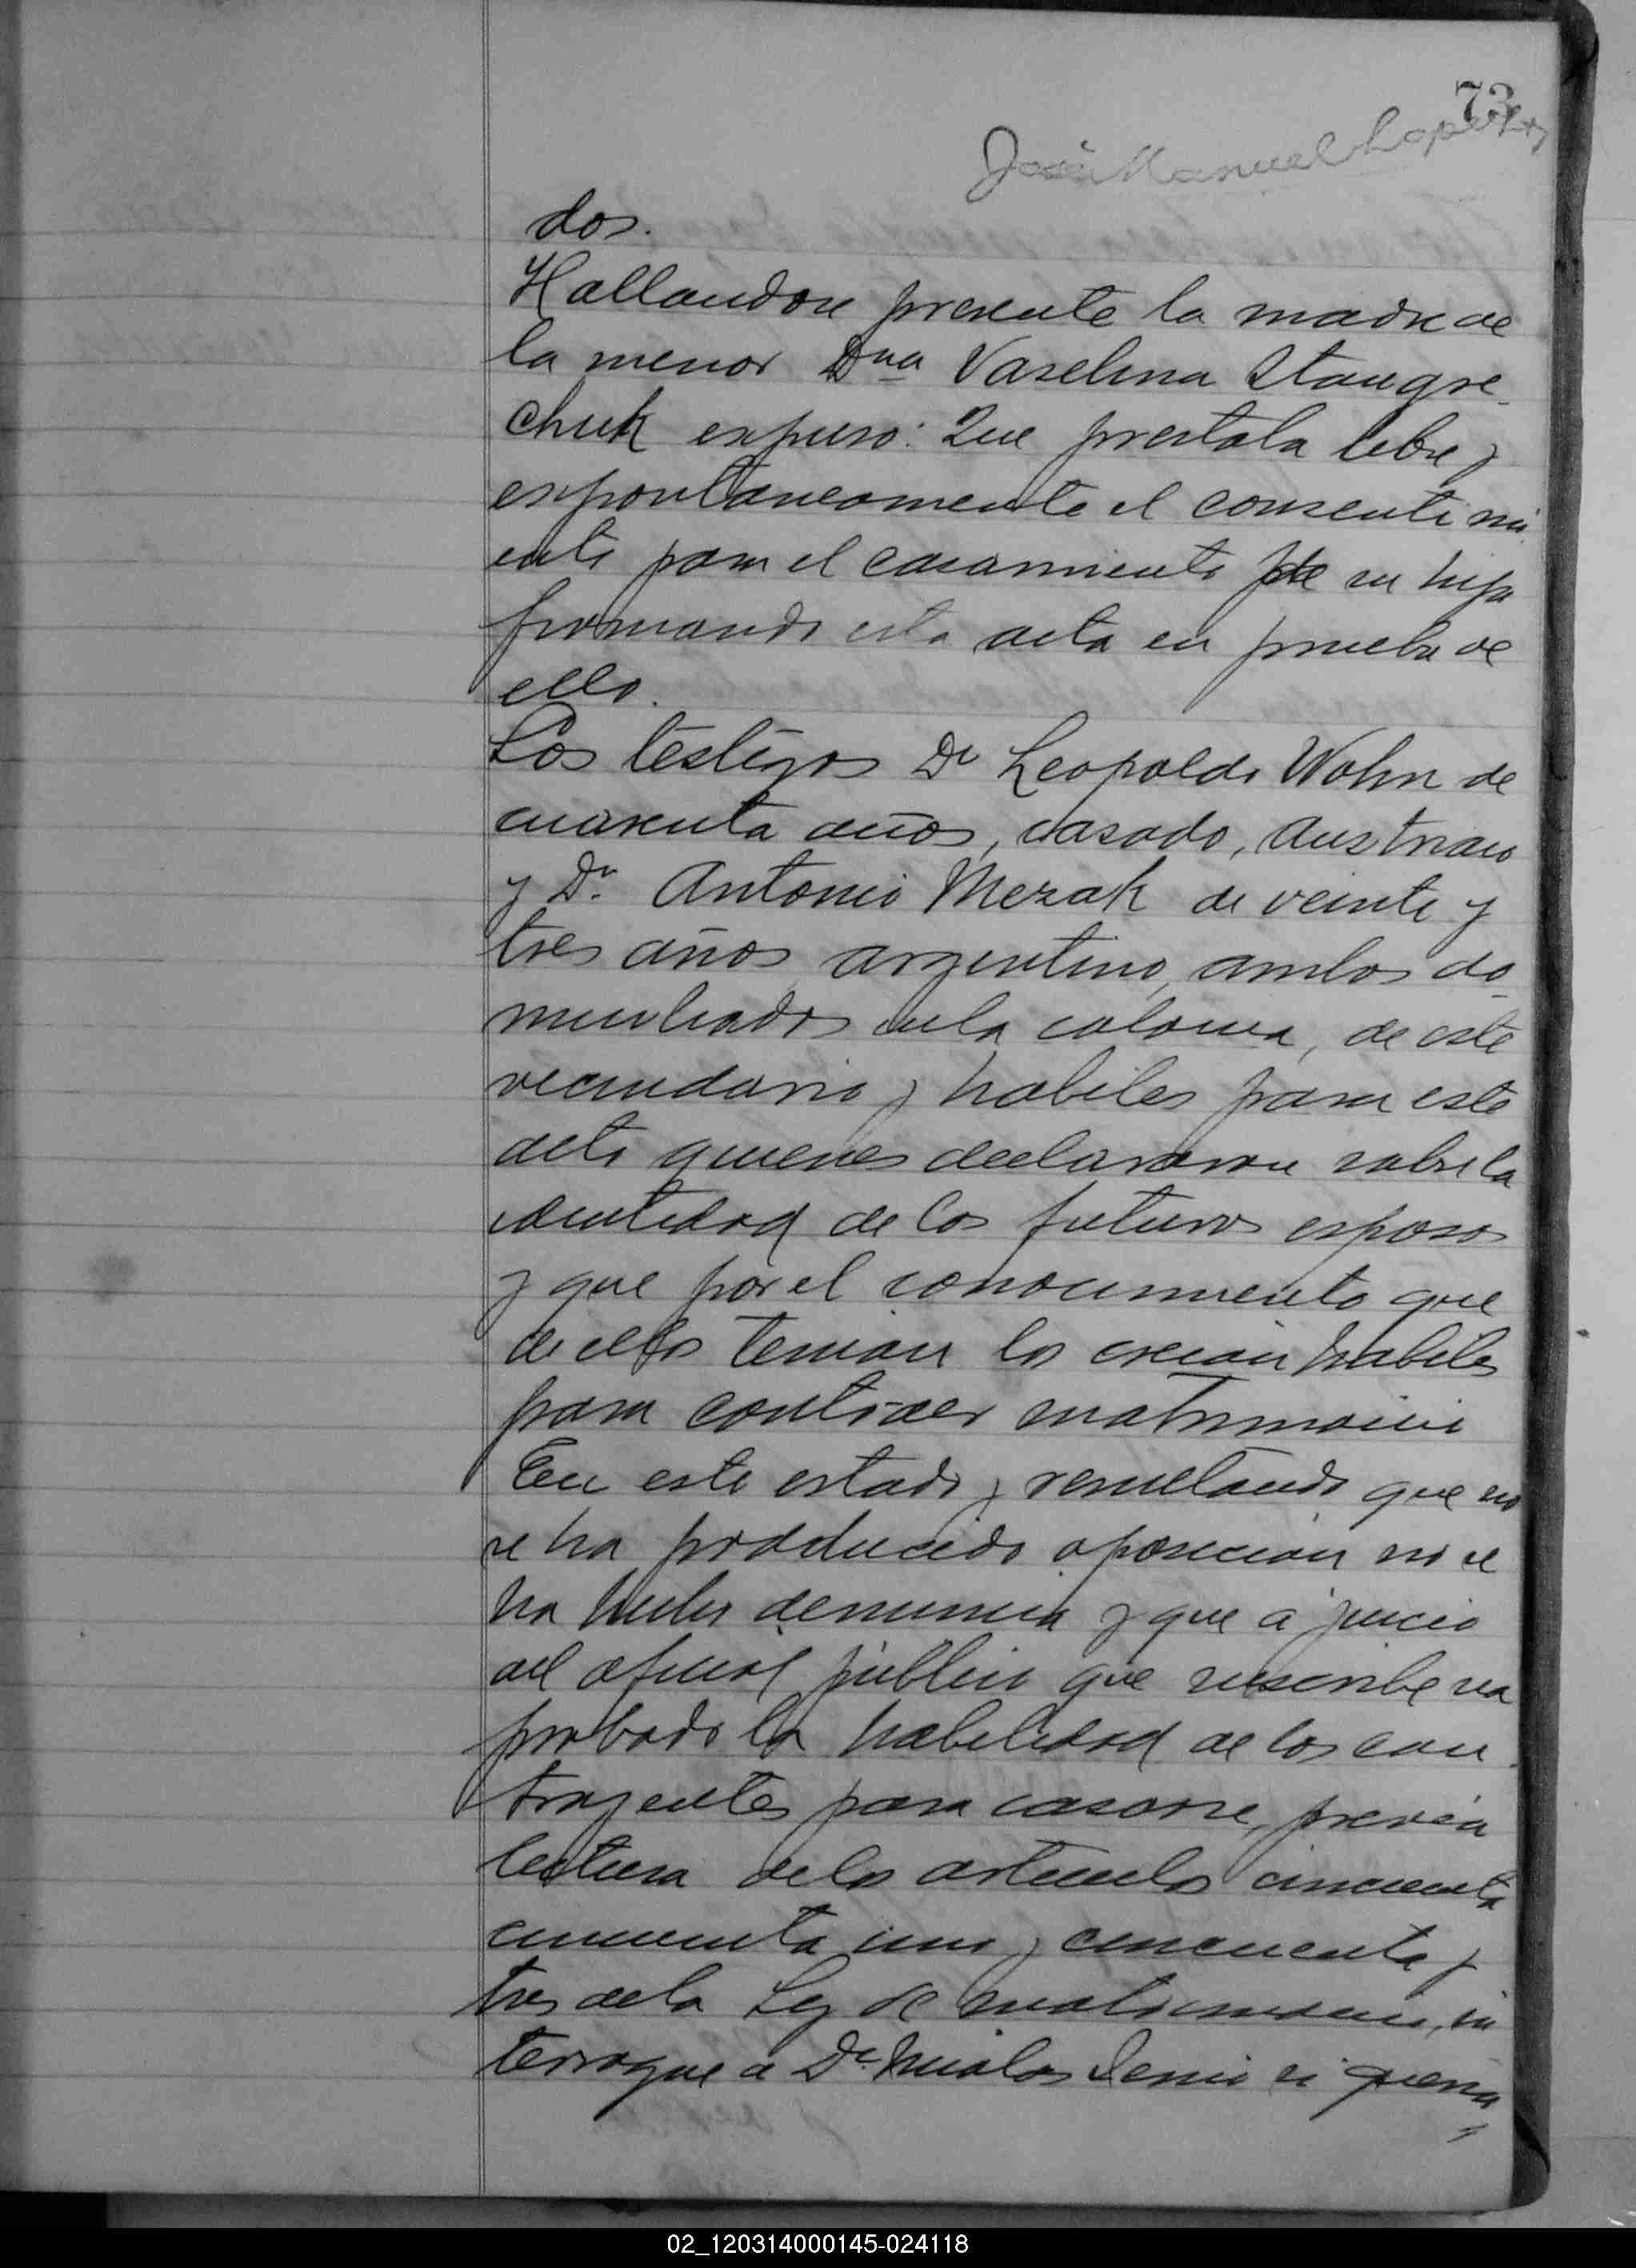 73
José Manuel Lopez
dos.
Hallandose presente la madre de
la menor Dna Vaselina Staugre-
chuk expuso: Que prestaba libre y
expontaneamente el consentimi
ento para el casamiento de su hija
firmando esta acta en prueba de
ello.
Los testigos Dn Leopoldo Wohn de
cuarenta años, casado, Austriaco
y Dn. Antonio Mezak de veinte y
tres años argentino, ambos do-
miciliados en la colonia, de este
vecindario y habiles para este
acto quienes declararon sobre la
identidad de los futuros esposos
y que por el conocimiento que
de ellos tenian los creian habiles
para contraer matrimonio
En este estado y resultando que no
se ha producido oposicion ni se
ha hecho denuncia y que a juicio
del oficial público que suscribe va
probado la habilidad de los con
trayentes para casarse, previa
lectura de los articulos cincuenta
cincuenta uno y cincuenta y
tres de la Ley de matrimonio, in
terrogue a Dn. Nicolas Senio si queria
02_120314000145-024118